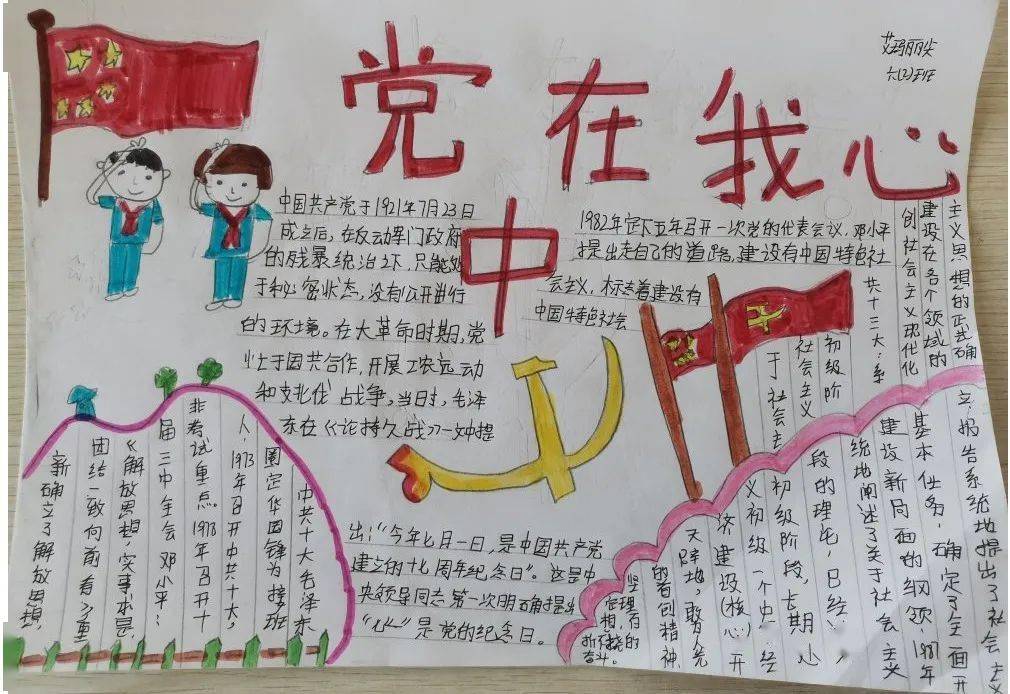 党在我心
中
艾玛丽尖
六(2)班
中国共产党于1921年7月23日
成立后,在反动军门政府
的残暴统治之下,只能处
于秘密状态,没有公开进行
的环境。在大革命时期,党
忙于国共合作,开展工农运动
和支北伐战争,当日时,毛泽
东在《论持久战》一文中提
出:“今年七月一日,是中国共产党
建立的十七周年纪念日”。这是中
央领导同志第一次明确提出
“七一”是党的纪念日。
1982年定下五年召开一次党的代表会议,邓小平
提出走自己的道路,建设有中国特色社
会主义,标志着建设有
中国特色社会
中共十大毛泽东
圈定华国锋为接班
人,1973年召开中共十大,
非考试重点。1978年召开十
届三中全会邓小平:
《解放思想,实事求是,
团结一致向前看》重
新确立了解放思想,
主义思想的正确确
立,报告系统地提出了社会主
建设在各个领域的
基本任务,确定了全面开
创社会主义现代化
建设新局面的纲领,1987年
共十三大:系
统地阐述了关于社会主义
初级阶
段的理论,日经
社会主义
初级阶段,长期
于社会主
义初级一个中
经
济建设(核心)开
天辟地,敢为人先
的首创精神
坚定理
想,百
折不挠的
奋斗。